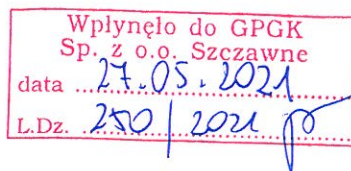 Wpłynęło do GPGK
Sp. z o.o. Szczawne
data ...27.05.2021
L.Dz. 250 / 2021